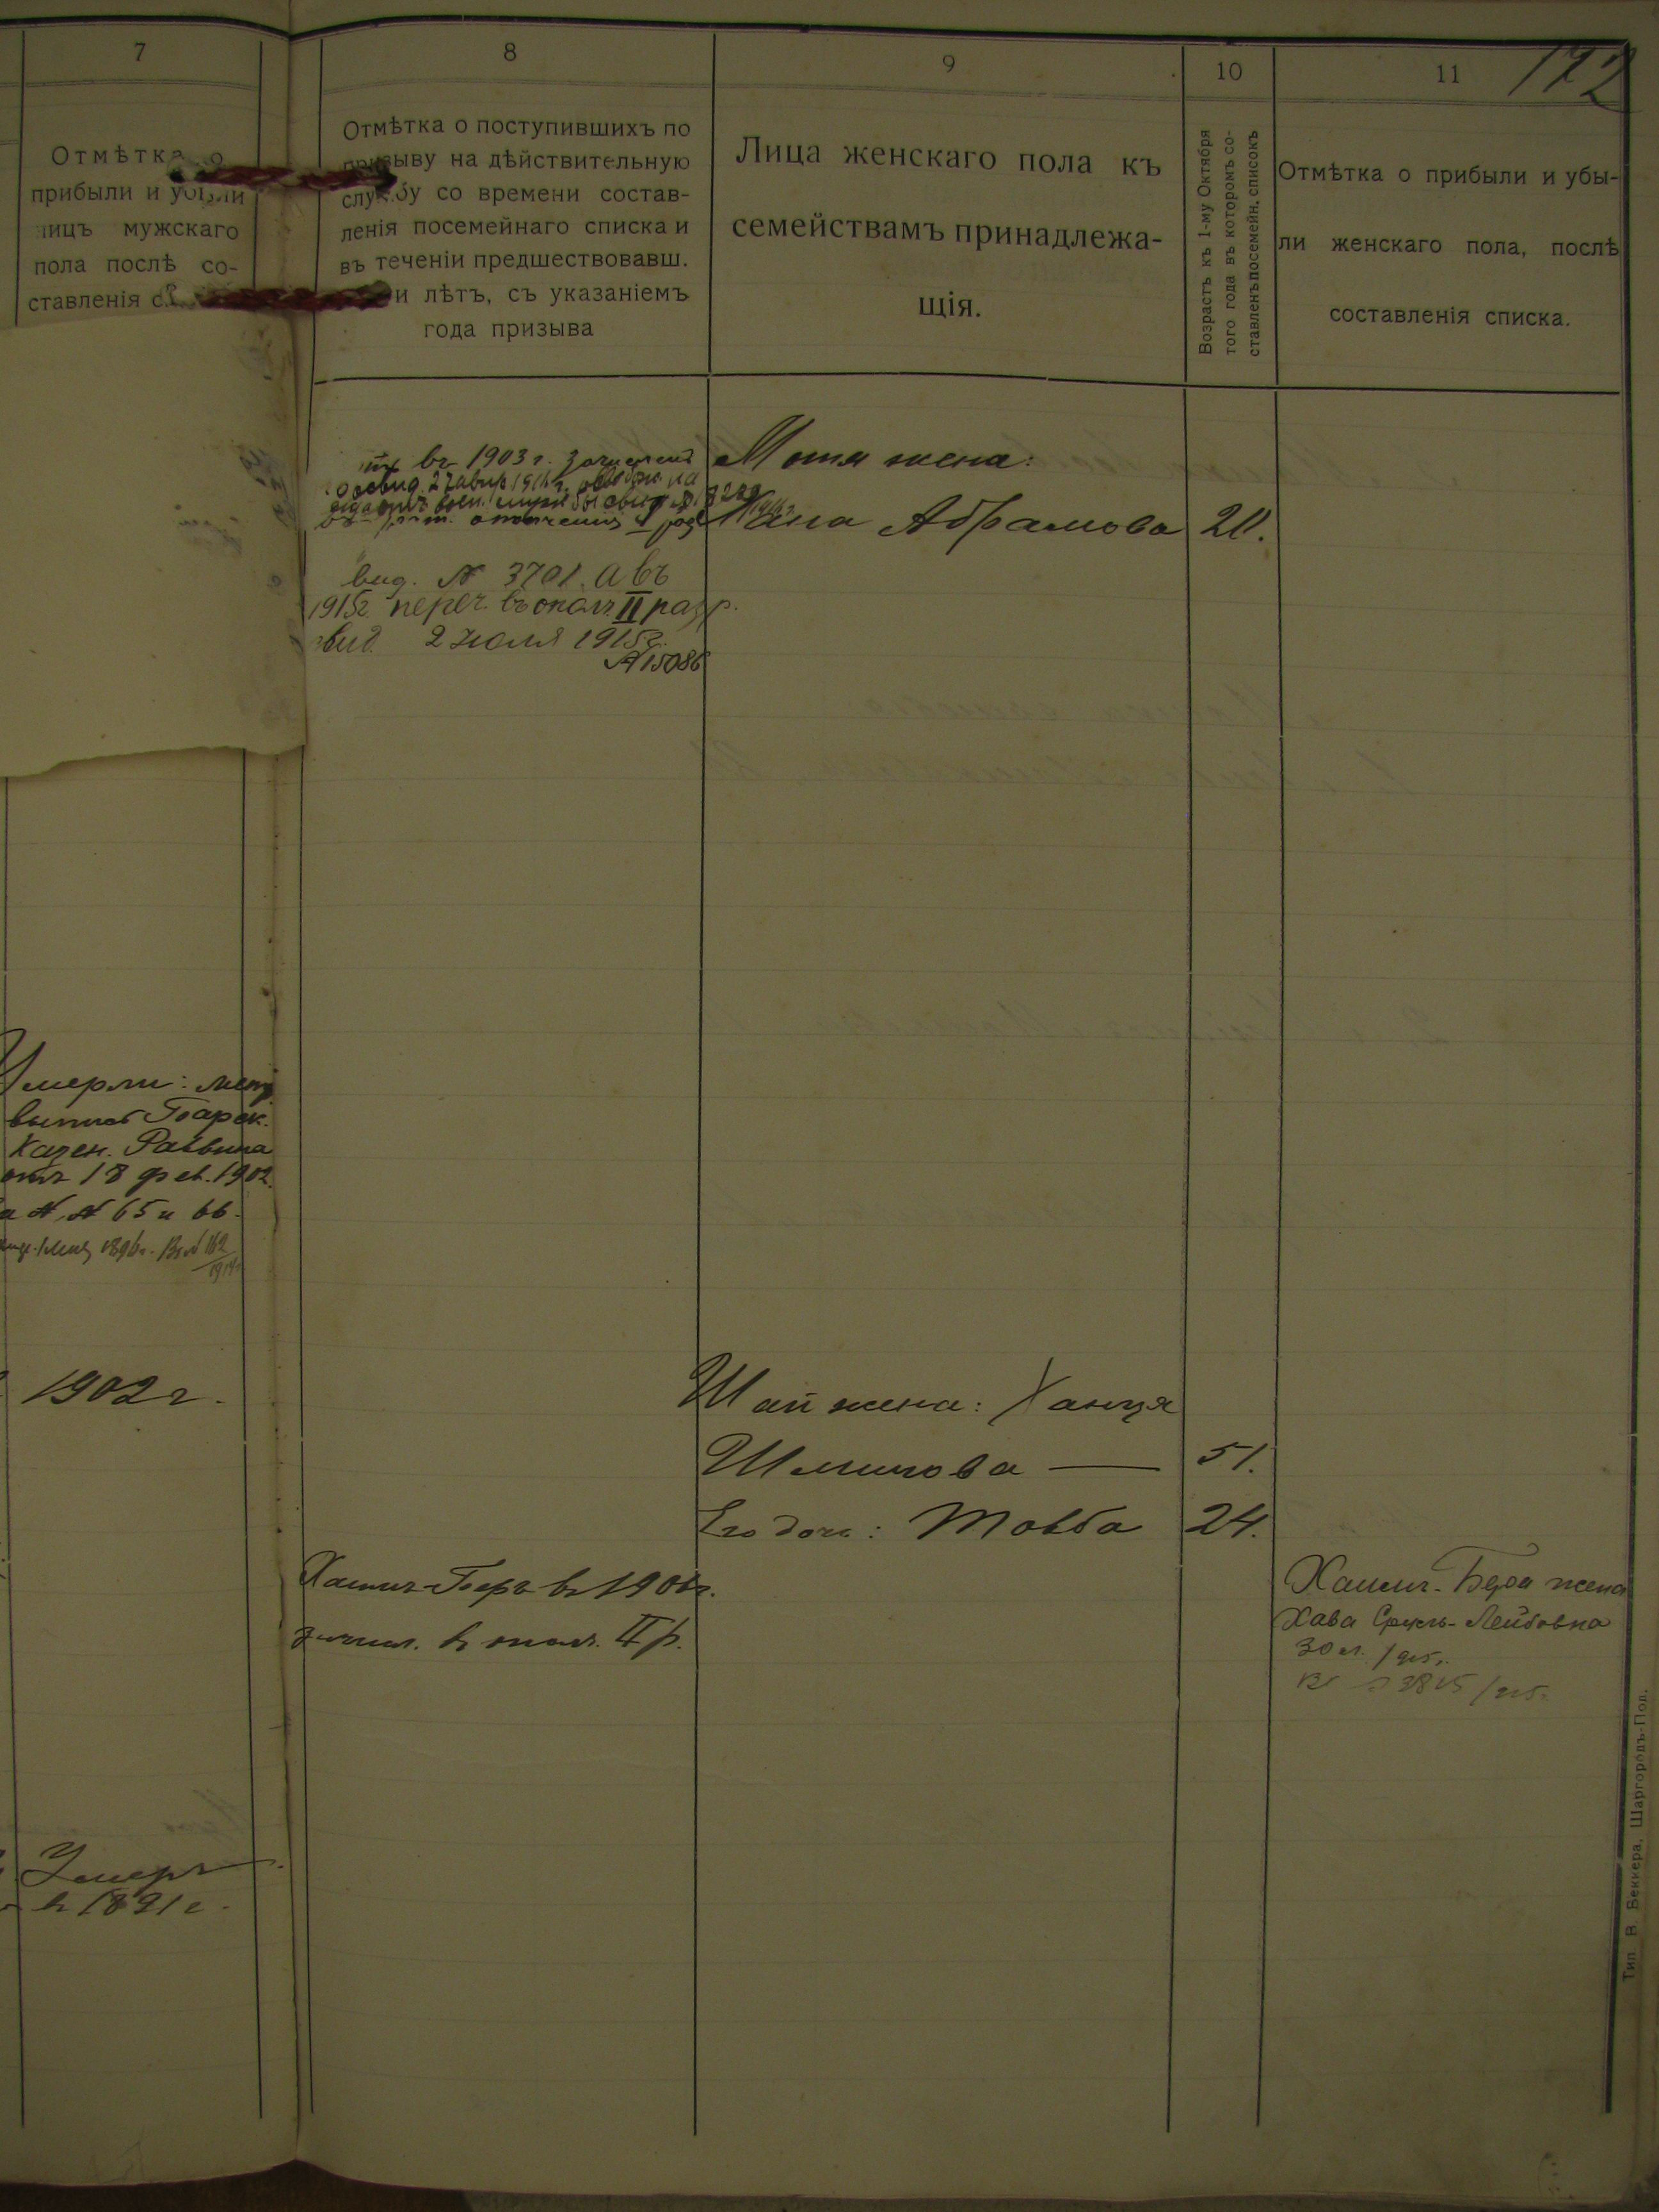 7
8
9
10
11
172
Отмѣтка о
прибыли и убыли
лицъ мужскаго
пола послѣ со-
ставленія
Отмѣтка о поступившихъ по
призыву на дѣйствительную
службу со времени состав-
ленія посемейнаго списка и
въ теченіи предшествовавш.
и лѣтъ, съ указаніемъ
года призыва
Лица женскаго пола къ
семействамъ принадлежа-
щія.
Возрастъ къ 1-му Октября
того года въ которомъ со-
ставленъ посемейн. списокъ
Отмѣтка о прибыли и убы-
ли женскаго пола, послѣ
составленія списка.
въ 1903 г. зачисленъ
ополченія
вид. № 3701. а въ
1915г. переч. въ опол. II разр.
вид 2 Июля 1915г.
№ 15086
Мотя жена:
Абрамова 20.
Умерли: мет
выпись
Казен. Раввина
отъ 18 фев. 1902
№ № 65 и 66.
1902 г.
Шаи жена: Ханця
Шлимова — 51.
Его дочь: Товба 24.
Хаимъ-Беръ въ 1906г.
зачисл. в опол. II р.
Хаимъ-Бера жена
Хава Сруль-Лейбовна
30 л. 1915г.
Умеръ
в 1891 г.
Тип. В Беккера, Шаргородъ-Под.